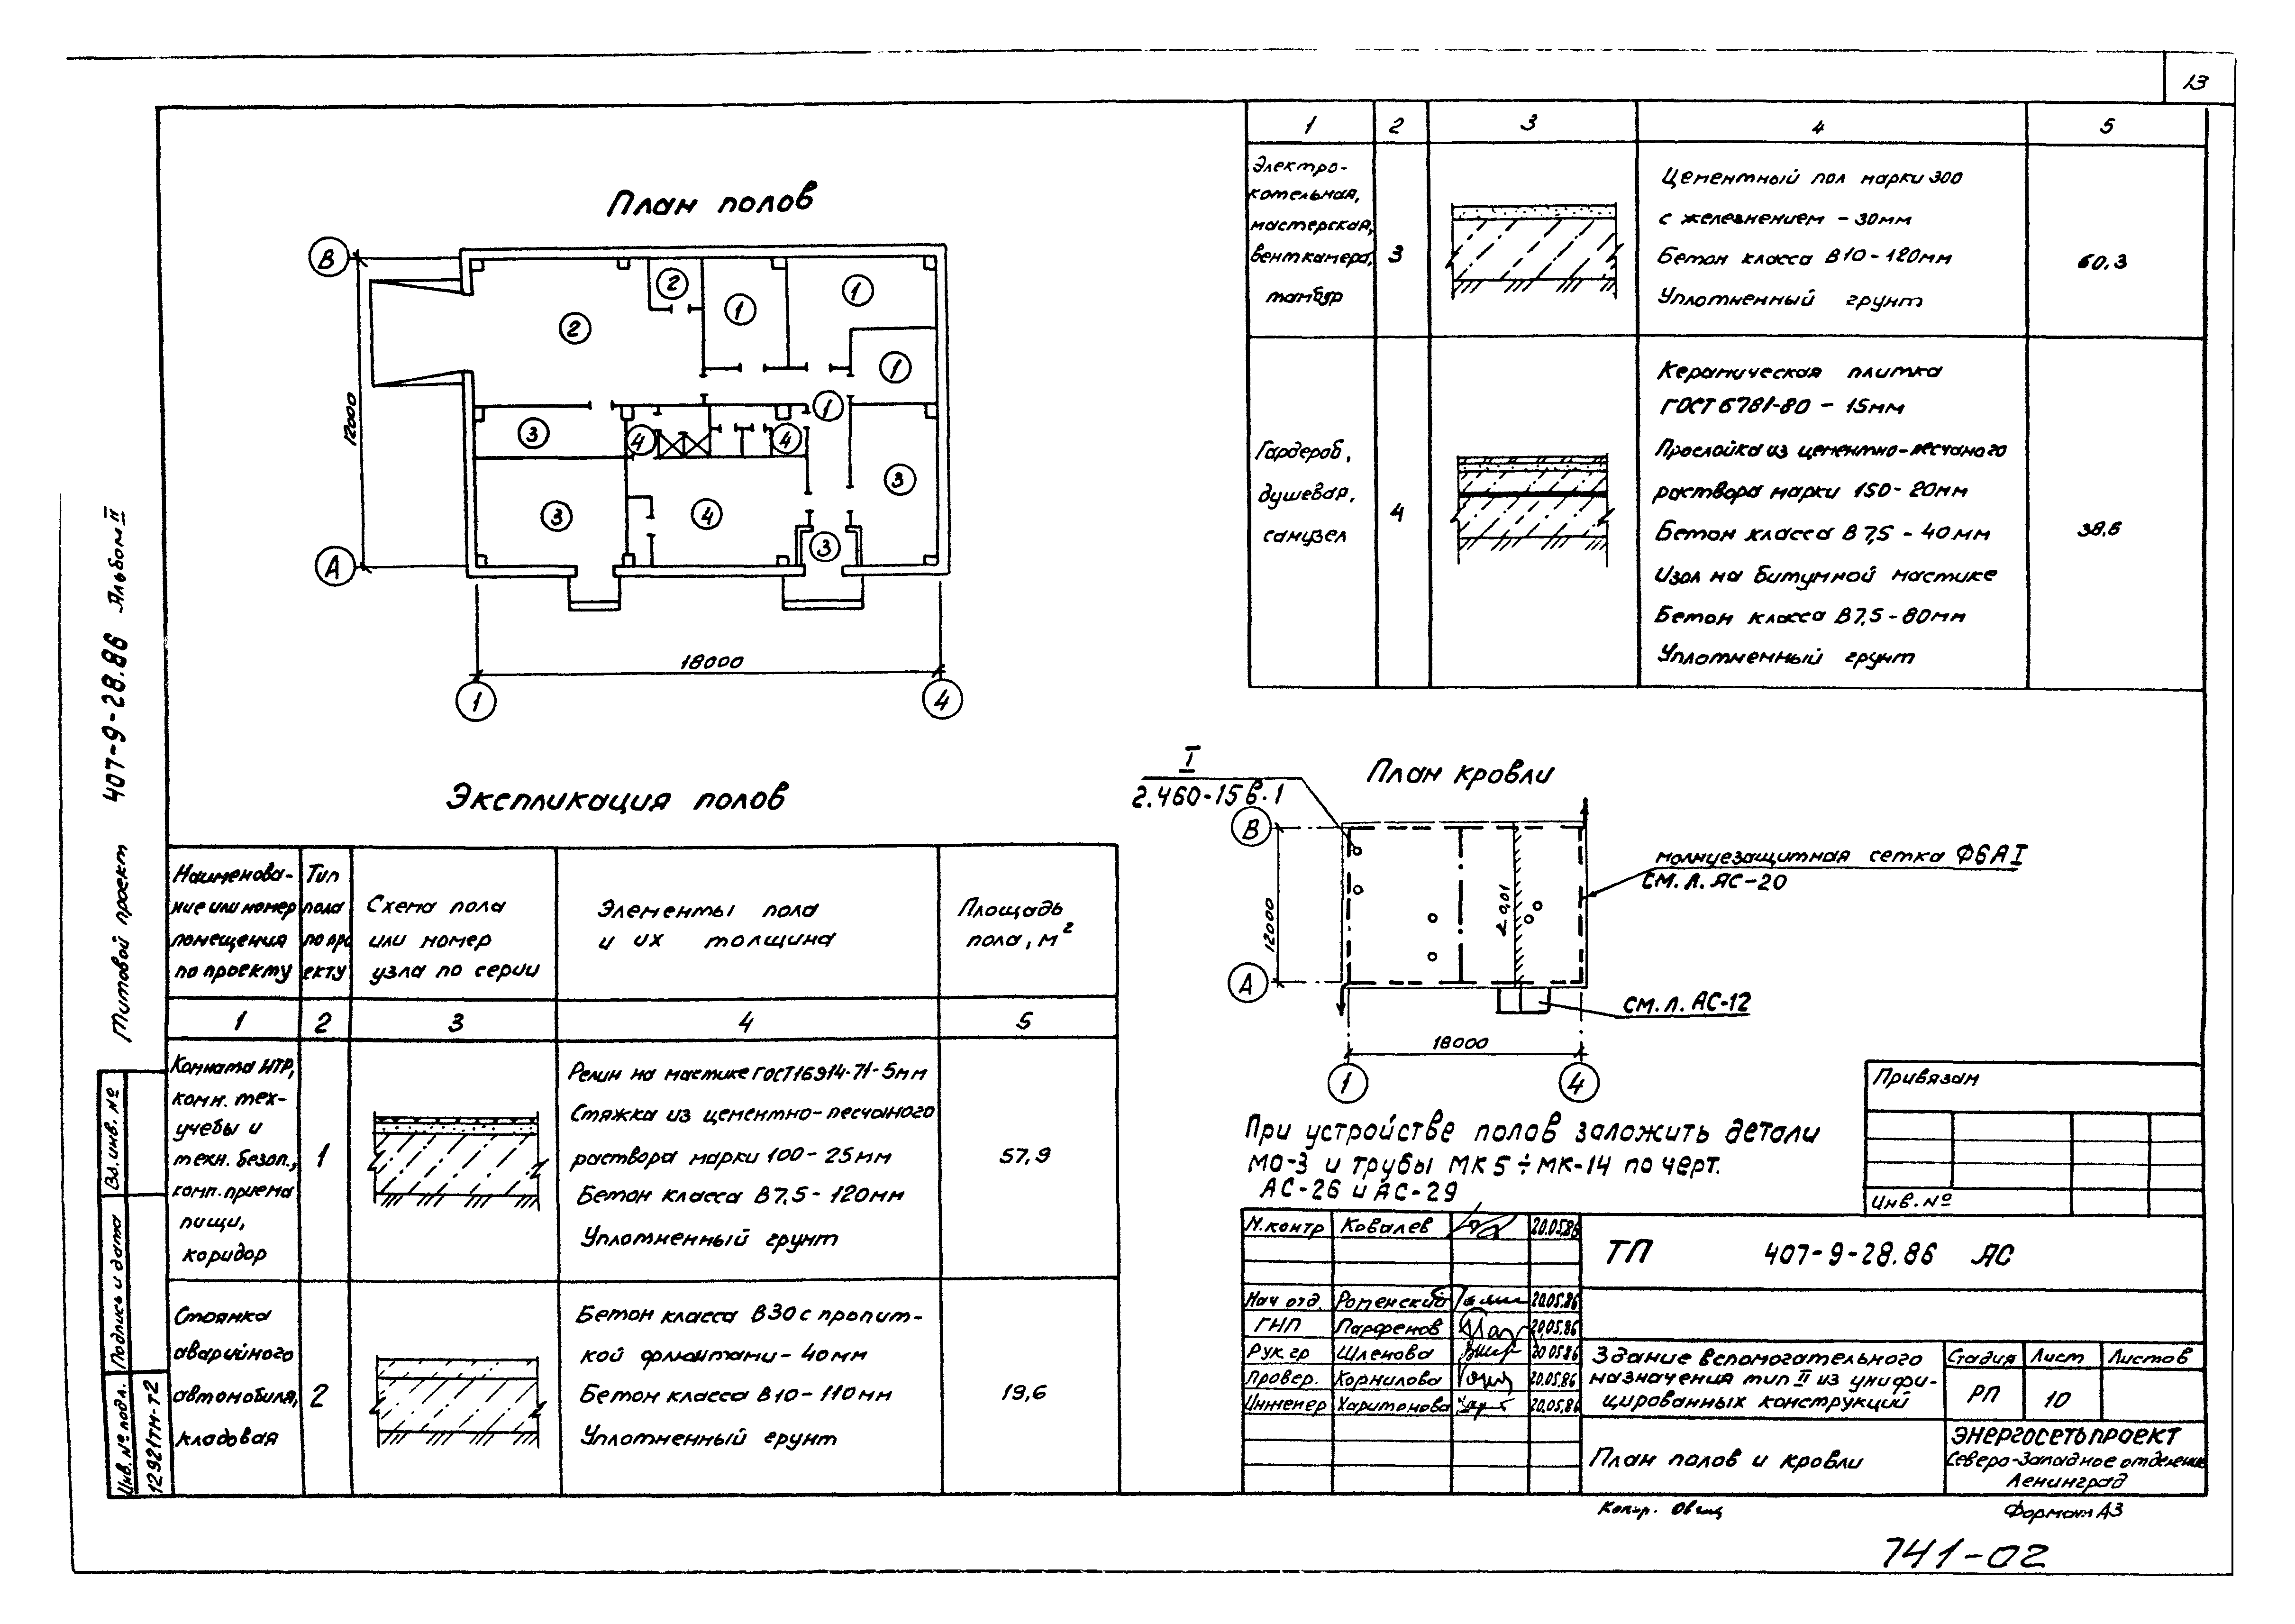 13
План полов
В
А
12000
18000
1
4
2
2
1
1
1
1
3
4
4
3
3
4
3
Экспликация полов
Наименова-
ние или номер
помещения
по проекту
Тип
пола
по про
екту
Схема пола
или номер
узла по серии
Элементы пола
и их толщина
Площадь
пола, м²
1 2 3 4 5
Комната ИТР,
комн. тех-
учебы и
техн. безоп.,
комн. приема
пищи,
коридор
1
Релин на мастике ГОСТ 16914-71-5мм
Стяжка из цементно-песчаного
раствора марки 100-25мм
Бетон класса В7,5-120мм
Уплотненный грунт
57,9
Стоянка
аварийного
автомобиля,
кладовая
2
Бетон класса В30 с пропит-
кой флюатами-40мм
Бетон класса В10-110мм
Уплотненный грунт
19,6
1 2 3 4 5
Электро-
котельная,
мастерская,
венткамера,
тамбур
3
Цементный пол марки 300
с железнением - 30мм
Бетон класса В10-120мм
Уплотненный грунт
60,3
Гардероб,
душевая,
санузел
4
Керамическая плитка
ГОСТ 6787-80 - 15мм
Прослойка из цементно-песчаного
раствора марки 150-20мм
Бетон класса В7,5-40мм
Изол на битумной мастике
Бетон класса В7,5-80мм
Уплотненный грунт
38,6
План кровли
I
2.460-15 в.1
В
А
12000
0,01
18000
1
4
молниезащитная сетка Ф6АI
см. л. АС-20
см. л. АС-12
При устройстве полов заложить детали
МО-3 и трубы МК5÷МК-14 по черт.
АС-26 и АС-29
Привязан
Инв. №
Н.контр Ковалев 20.05.86
Нач отд. Роменский 20.05.86
ГИП Парфенов 20.05.86
Рук. гр Шленова 20.05.86
Провер. Корнилова 20.05.86
Инженер Харитонова 20.05.86
ТП 407-9-28.86 АС
Здание вспомогательного
назначения тип II из унифи-
цированных конструкций
Стадия Лист Листов
РП 10
План полов и кровли
ЭНЕРГОСЕТЬПРОЕКТ
Северо-Западное отделение
Ленинград
Копир.
Формат А3
741-02
Типовой проект 407-9-28.86 Альбом II
Вз. инв. №
Подпись и дата
Инв. № подл.
12921ТМ-Т2